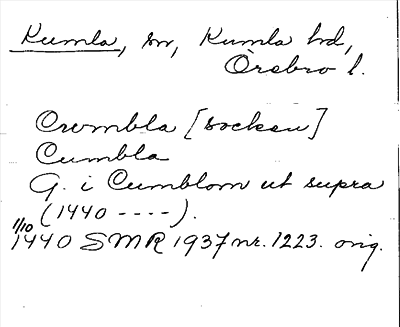 Kumla, sn, Kumla hd,
Örebro l.
Crombla [socken]
Cumbla
G. i Cumblom ut supra
(1440 ----).
1/10
1440 SMR 1937 nr. 1223. orig.